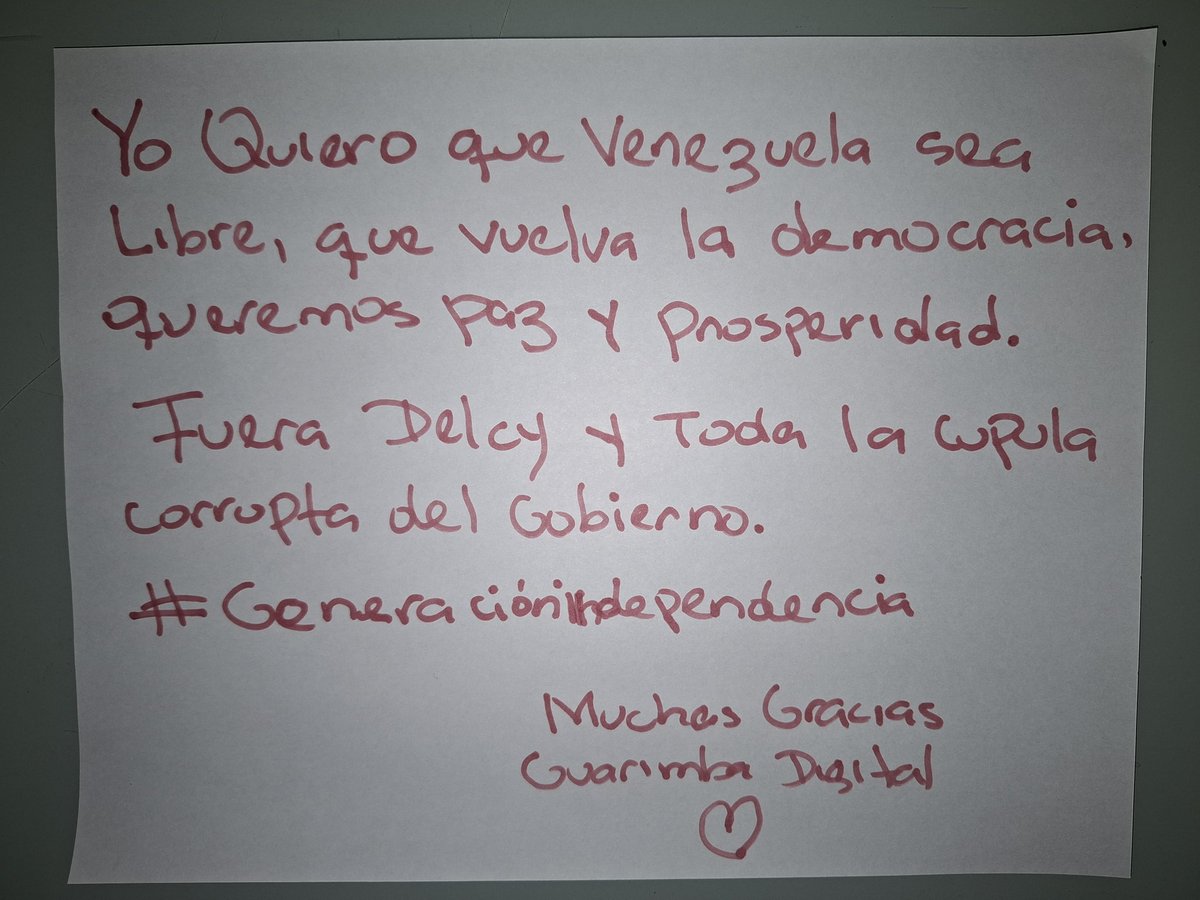 Yo Quiero que Venezuela sea
Libre, que vuelva la democracia,
queremos paz y prosperidad.
Fuera Delcy y Toda la cupula
corrupta del Gobierno.
#GeneraciónIndependencia
Muchas Gracias
Guarimba Digital